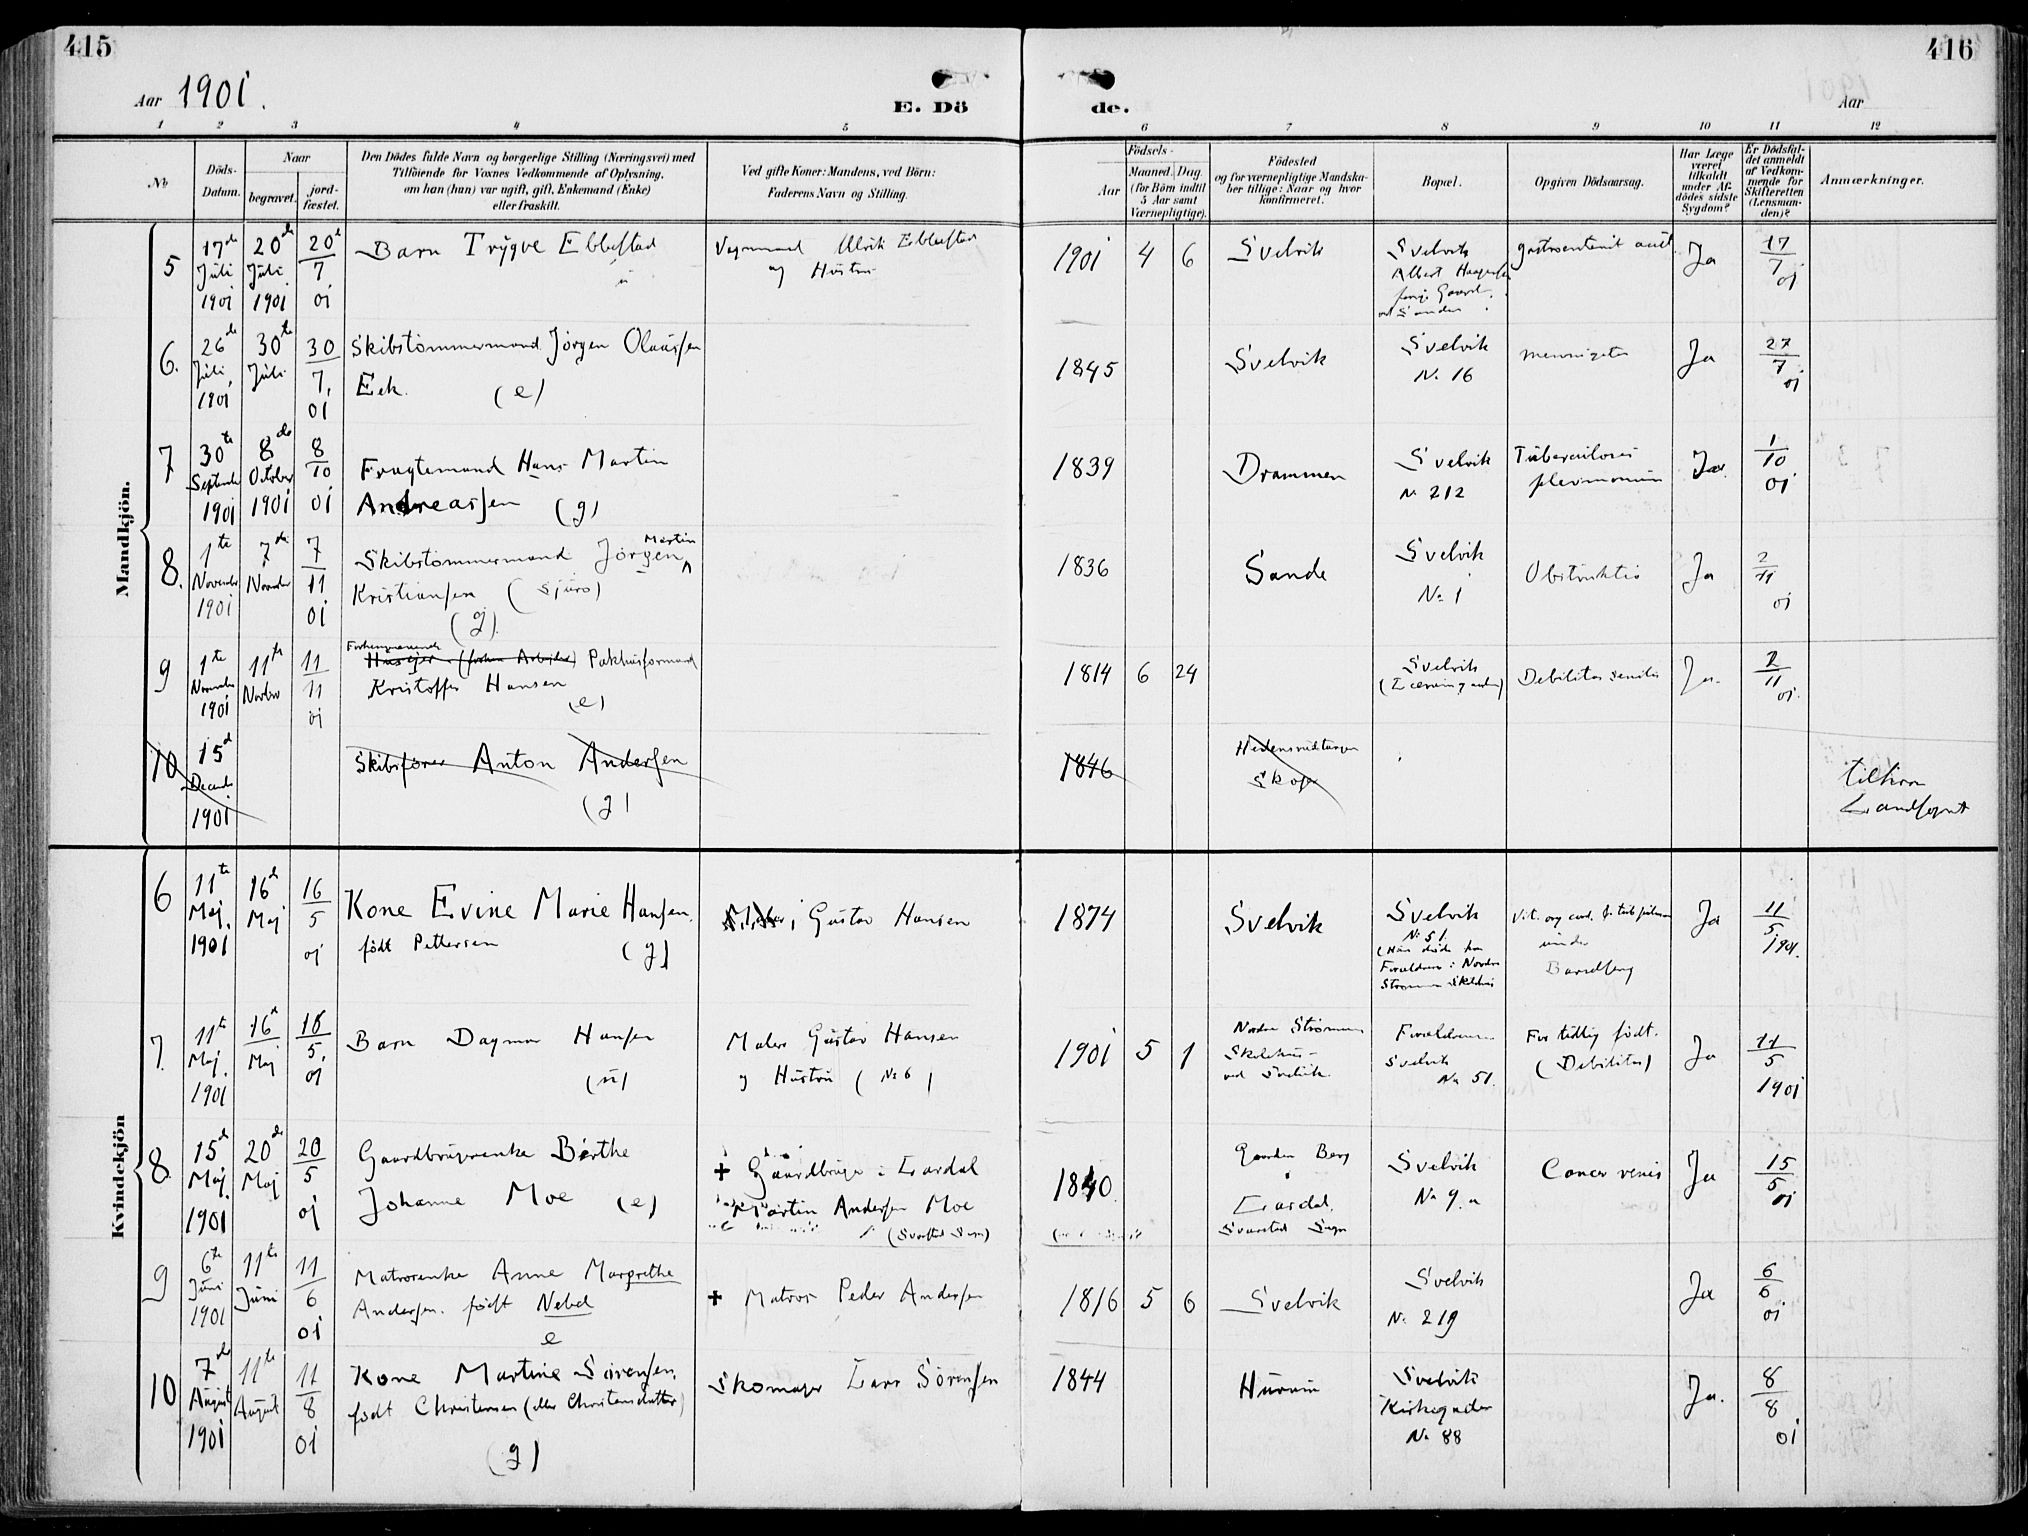 415
416
Aar 1901.
E. Dö
de.
Aar
1 2 3 4 5 6 7 8 9 10 11 12
No
Döds-
Datum.
Naar
begravet.
jord-
fæstet.
Den Dödes fulde Navn og borgerlige Stilling (Næringsvei) med
Tilföiende for Voxnes Vedkommende af Oplysning,
om han (hun) var ugift, gift, Enkemand (Enke)
eller fraskilt.
Ved gifte Koner: Mandens, ved Börn:
Faderens Navn og Stilling.
Födsels-
Aar
Maaned. Dag.
(for Börn indtil
5 Aar samt
Værnepligtige).
Födested
og for værnepligtige Mandska-
ber tillige: Naar og hvor
konfirmeret.
Bopæl.
Opgiven Dödsaarsag.
Har Læge
været
tilkaldt
under Af-
dödes sidste
Sygdom?
Er Dödsfal-
det anmeldt
af Vedkom-
mende for
Skifteretten
(Lensman-
den)?
Anmærkninger.
Mandkjön.
5
17de Juli 1901
20de Juli 1901
20/7 01
Barn Trygve Ebbestad
u
Ulrik Ebbestad
og Hustru
1901 4 6
Svelvik
Svelvik
Albert
Ja
17/7 01
6.
26de Juli, 1901
30te Juli
30/7, 01
Skibstømmermand Jørgen Olaussen
Eek. (e)
1845
Svelvik
Svelvik
No 16
Ja
27/7 01
7
30te September 1901
8de October 1901
8/10 01
Fragtemand Hans Martin
Andreassen (g)
1839
Drammen
Svelvik
No 212
Tuberculosis
pulmonum
Ja
1/10 01
8.
1te November 1901
7de November
7/11 01
Martin
Skibstømmermand Jørgen
Kristiansen (Sjuro)
(g).
1836
Sande
Svelvik
No 1
Ja
2/11 01
9
1te November 1901
11te
11/11 01
Forhenværende
Pakhusformand
Kristoffer Hansen
(e)
1814 6 24
Svelvik
Debilitas senilis
Ja.
2/11 01.
10
15d December 1901
Skibsfører Anton Andersen
(g)
1846
Skoger
tilhører
Landsognet
Kvindekjön
6
11te Maj. 1901
16d Maj
16/5 01
Kone Evine Marie Hansen.
født Pettersen (g)
Gustav Hansen
1874
Svelvik
Svelvik
No 51.
Forældrene i Nordre
under
Barselseng
Ja
11/5 1901.
7.
11te Maj. 1901
16d Maj
16/5, 01
Barn Dagmar Hansen
(u)
Maler Gustav Hansen
og Hustru (No 6)
1901 5 1
Nordre Strømmen
Skolehus
ved Svelvik.
Forældrene
Svelvik
No 51.
For tidlig født.
(Debilitas)
Ja
11/5 1901
8.
15d Maj. 1901
20de Maj
20/5 01
Gaardbrugerenke Berthe
Johanne Moe (e)
✝ Gaardbruger i Lardal
Martin Andersen Moe
1840.
Gaarden Berg
i
Lardal.
Svarstad Sogn
Svelvik
No 9.a
Cancer
Ja
15/5 01
9
6te Juni 1901
11te Juni
11/6 01
Matrosenke Anne Margrethe
Andersen. født Nebel
e
✝ Matros Peder Andersen
1816 5 6
Svelvik
Svelvik
No 219
Ja
6/6 01
10
7de August 1901
11te August
11/8 01
Kone Martine Sørensen,
født Christensen (eller Christensdatter)
(g)
Skomager Lars Sørensen
1844
Hurum
Svelvik
Kirkegaden
No 88
Ja.
8/8 01